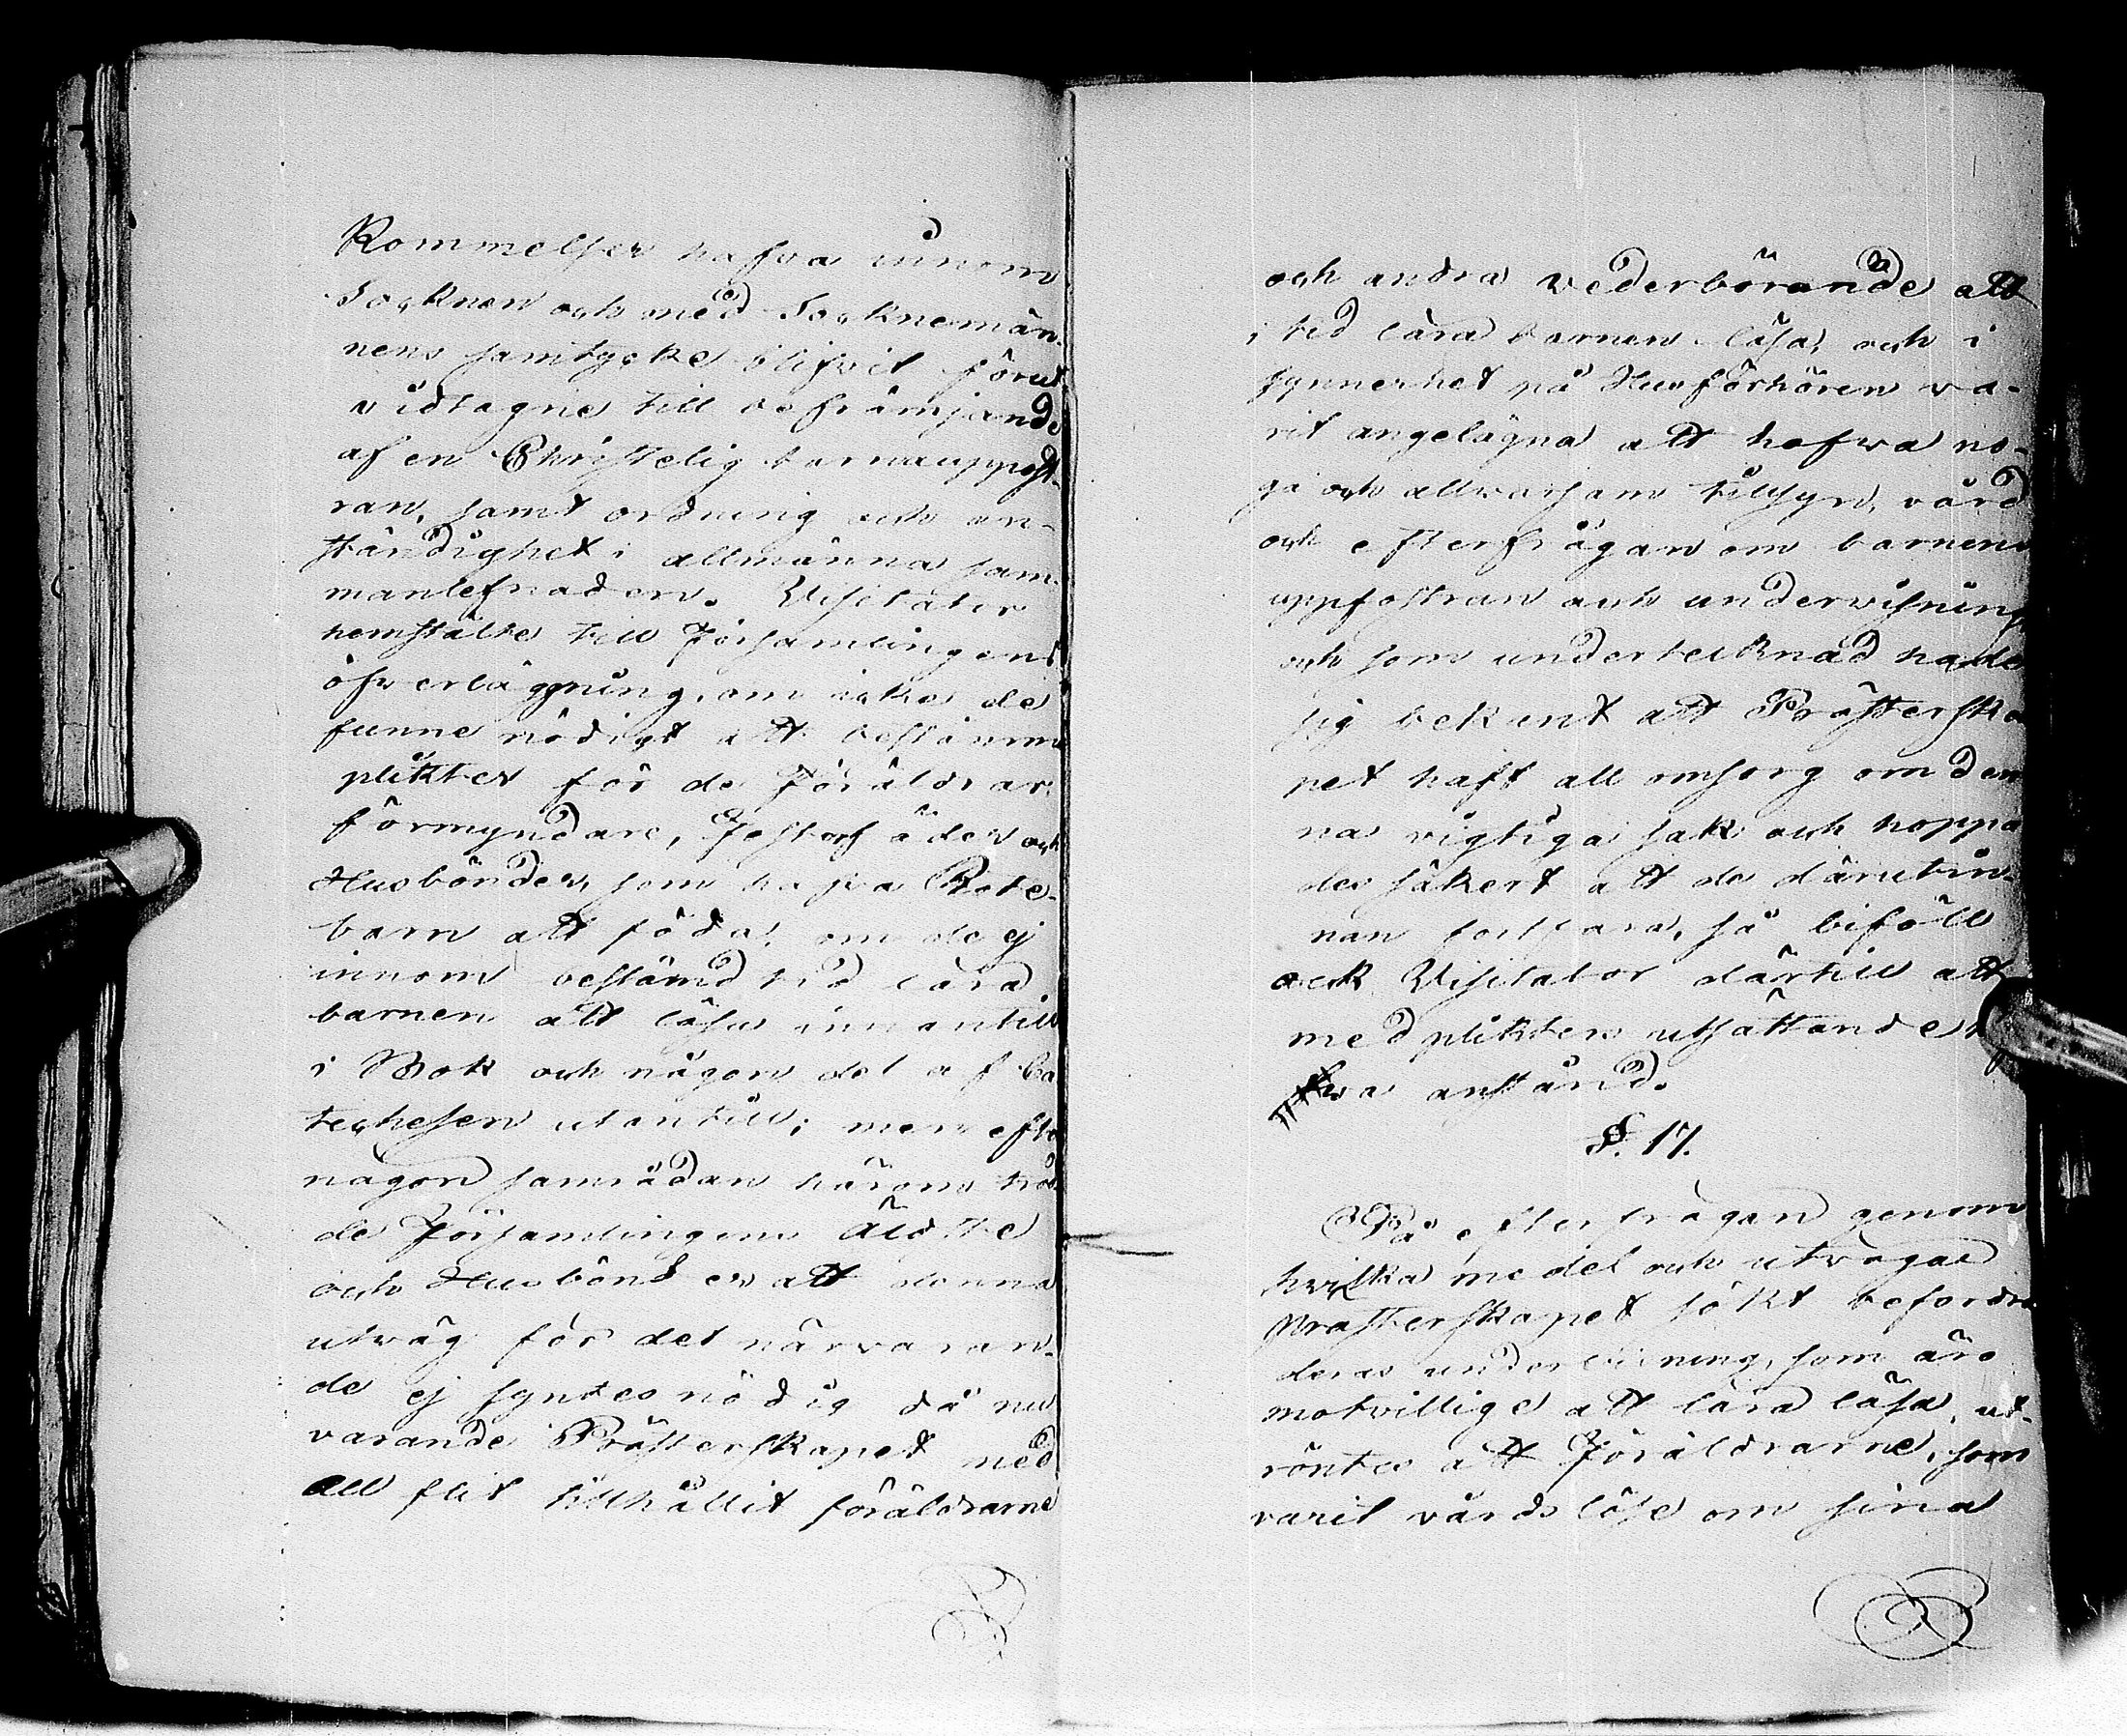 Kommelser hafva innom
Socknen och med Socknemän-
nens samtycke blifvit förut
vidtagne till befrämjande
af en Christelig barnauppfost-
ran, samt ordning och an-
ständighet i allmänna sam-
manlefnaden. Visitator
hemstälte till Församlingens
öfverläggning, om icke de
funne nödigt att bestämma
plikter för de Föräldrar,
förmyndare, Fosterfäder och
Husbönder, som hafva Rote-
barn att föda, om de ej
innom bestämd tid lära
barnen att läsa innantill
i Bok och någon del af Ca
techesen utantill; men efter
någon samrådan härom trod-
de Församlingens Äldste
och Husbönder att denna
utväg för det närvaran-
de ej syntes nödig då nu
varande Prästerskapet med
all flit tillhållit föräldrarne
och andra vederbörande att
i tid lära barnen läsa, och i
synnerhet på Husförhören va-
rit angelägna att hafva no-
ga och allvarsam tillsyn, vård
och efterfrågan om barnens
uppfostran och undervisning,
och som undertecknad hade
sig bekant att Prästerska
pet haft all omsorg om den
na vigtiga sak och hoppa
des säkert att de därutin-
nan fortfara, så biföll
ock Visitator därtill att
med plikters utsättande
fva anstånd.
§. 17.
På efterfrågan genom
hvilka medel och utvägar
Prästerskapet sökt befordra
deras undervisning, som äro
motvillige att lära läsa, ut-
röntes att Föräldrarne, som
varit vårdslöse om sina